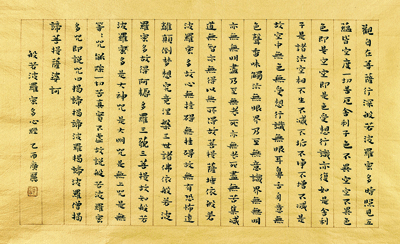 觀自在菩薩行深般若波羅蜜多時照見五
蘊皆空度一切苦厄舍利子色不異空空不異色
色即是空空即是色受想行識亦復如是舍利
子是諸法空相不生不滅不垢不淨不增不減是
故空中無色無受想行識無眼耳鼻舌身意無
色聲香味觸法無眼界乃至無意識界無無明
亦無無明盡乃至無老死亦無老死盡無苦集滅
道無智亦無得以無所得故菩提薩埵依般若
波羅蜜多故心無罣礙無罣礙故無有恐怖遠
離顛倒夢想究竟涅槃三世諸佛依般若波
羅蜜多故得阿耨多羅三藐三菩提故知般若
波羅蜜多是大神咒是大明咒是無上咒是無
等等咒能除一切苦真實不虛故說般若波羅蜜
多咒即說咒曰揭諦揭諦波羅揭諦波羅僧揭
諦菩提薩婆訶
般若波羅蜜多心經 乙酉